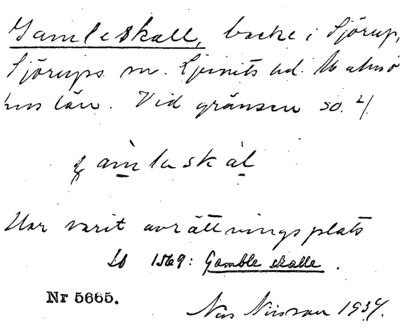 Gamleskall, backe i Sjörup,
Sjörups sn. Ljunits hd. Malmö
hus län. Vid gränsen so. 4.
gàmlaskàl
Har varit avrättningsplats
LO 1569: Gamble skalle.
Nr 5665.
Nils Nilsson 1934.